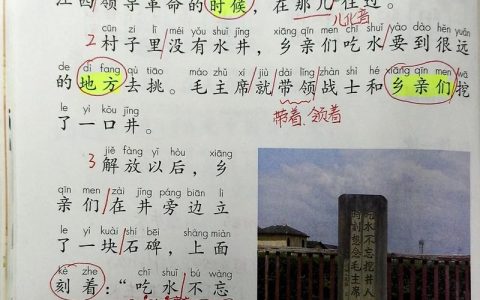 江西领导革命的时候，在那儿住过。
儿化音
cūn zi lǐ méi yǒu shuǐ jǐng xiāng qīn men chī shuǐ yào dào hěn yuǎn
2 村子里没有水井，乡亲们吃水要到很远
de dì fang qù tiāo máo zhǔ xí jiù dài lǐng zhàn shì hé xiāng qīn men wā
的地方去挑。毛主席就带领战士和乡亲们挖
带着、领着
le yì kǒu jǐng
了一口井。
jiě fàng yǐ hòu xiāng
3 解放以后，乡
qīn men zài jǐng páng biān lì
亲们在井旁边立
le yí kuài shí bēi shàng miàn
了一块石碑，上面
kè zhe chī shuǐ bú wàng
刻着：“吃水不忘
吃水不忘挖井人
时刻想念毛主席